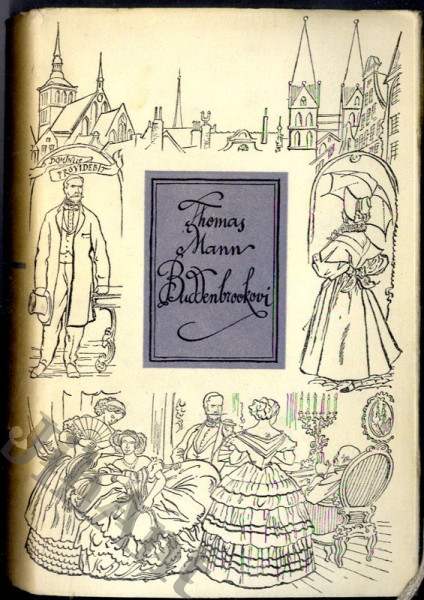 DOMINUS
PROVIDEBIT
Thomas
Mann
Buddenbrookovi